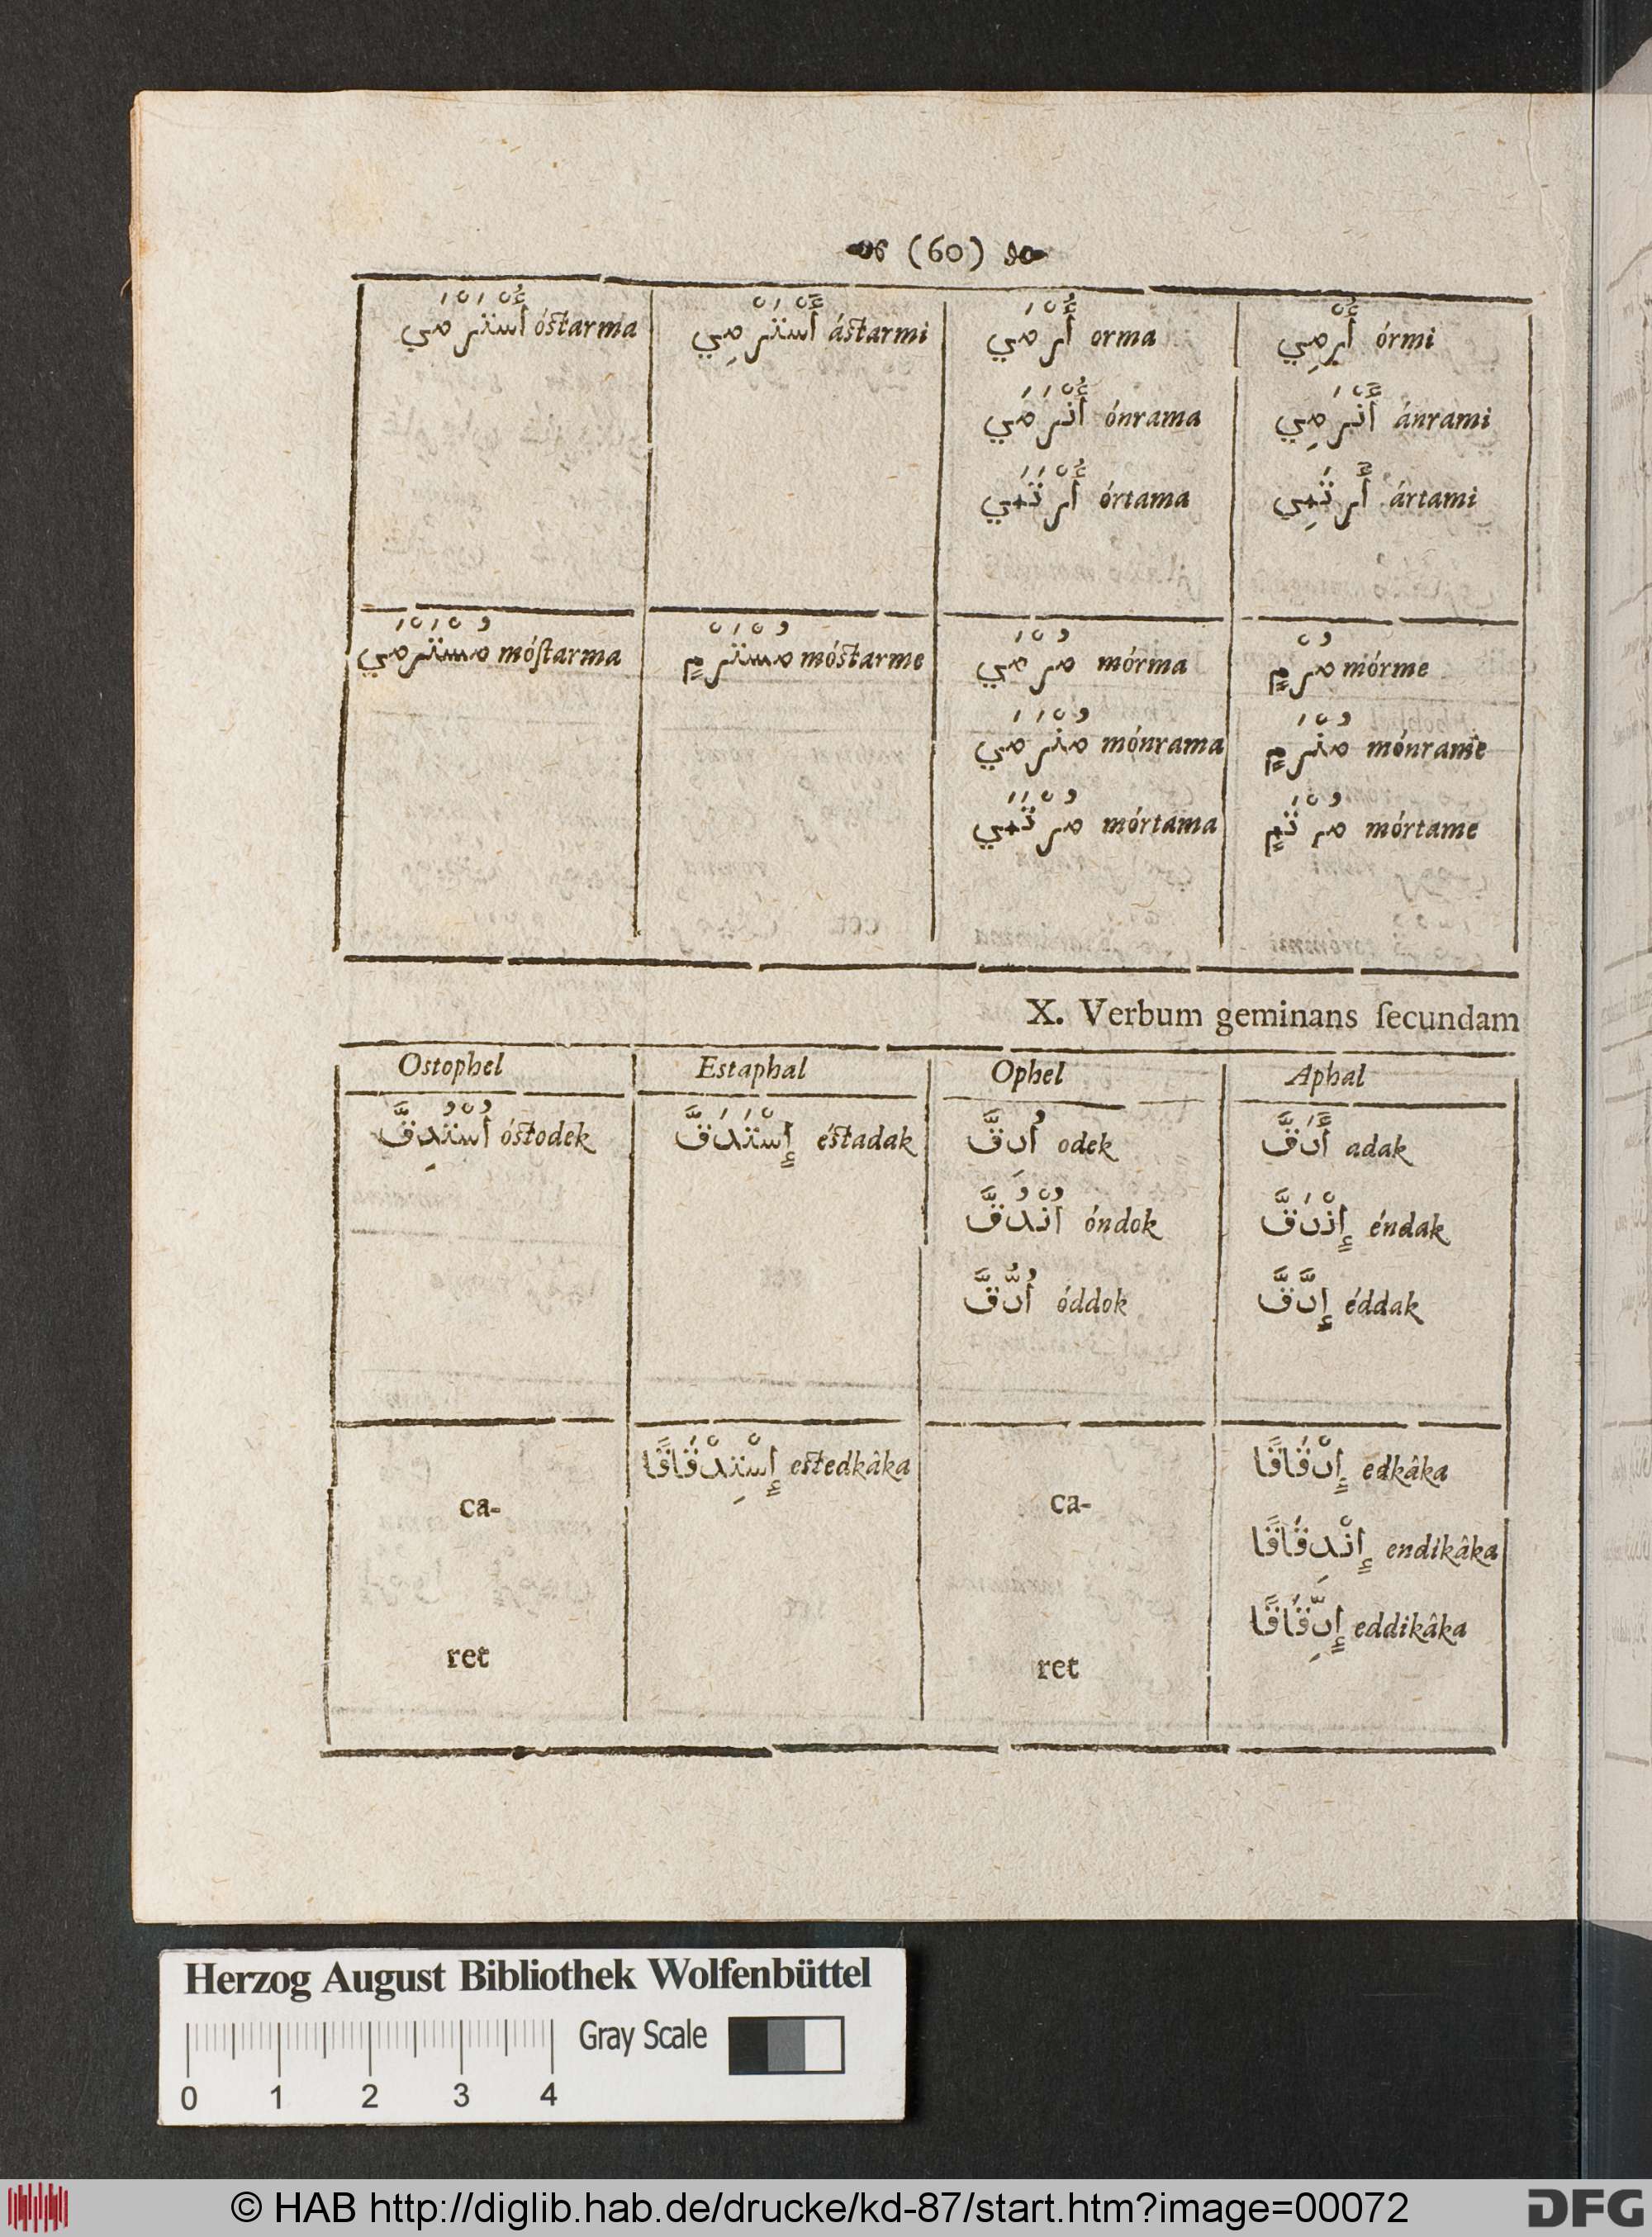 (60)
أُسْتَرْمَي óstarma أَسْتَرْمِي ástarmi أُرْمَي orma أُرْمِي órmi
أُنْرَمَي ónrama أَنْرَمِي ánrami
أُرْتَمَي órtama أَرْتَمِي ártami
مُسْتَرْمَي móſtarma مُسْتَرْمٍ móstarme مُرْمَي mórma مُرْمٍ mórme
مُنْرَمَي mónrama مُنْرَمٍ mónrame
مُرْتَمَي mórtama مُرْتَمٍ mórtame
X. Verbum geminans ſecundam
Ostophel Estaphal Ophel Aphal
أُسْتُدِقَّ óstodek إِسْتَدَقَّ éstadak أُدِقَّ odek أَدَقَّ adak
أُنْدُقَّ óndok إِنْدَقَّ éndak
أُدُّقَّ óddok إِدَّقَّ éddak
إِسْتِدْقَاقًا estedkâka إِدْقَاقًا edkâka
ca- ca-
إِنْدِقَاقًا endikâka
إِدِّقَاقًا eddikâka
ret ret
Herzog August Bibliothek Wolfenbüttel
Gray Scale
0 1 2 3 4
© HAB http://diglib.hab.de/drucke/kd-87/start.htm?image=00072
DFG